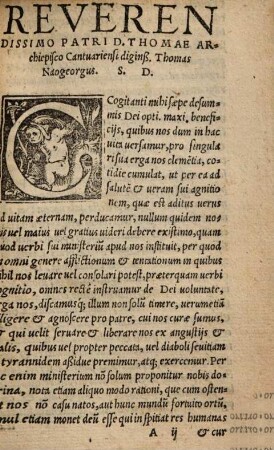 REVEREN
DISSIMO PATRI D. THOMAE AR
chiepisco Cantuariensi digniß. Thomas
Naogeorgus. S. D.
Cogitanti mihi sæpe desum⸗
mis Dei opti. maxi, benefi⸗
cijs, quibus nos dum in hac
uita uersamur, pro singula
ri sua erga nos clemētia, co⸗
tidie cumulat, ut per ea ad
salutē & ueram sui agnitio
nem, quæ est aditus uerus
d uitam æternam, perducamur, nullum quidem nos
is uel maius uel gratius uideri debere existimo, quam
quod uerbi sui ministeriū apud nos instituit, per quod
omni genere afflictionum & tentationum in quibus
ihil nos leuare uel consolari potest, præterquam uerbi
ognitio, omnes rectē instruamur de Dei uoluntate,
rga nos, discamusq; illum non solū timere, uerumetiā
ligere & agnoscere pro patre, cui nos curæ sumus,
& qui uelit seruare & liberare nos ex angustijs &
alis, quibus uel propter peccata, uel diaboli seuitiam
tyrannidem aßidue premimur, atq; exercemur. Per
c enim ministerium nō solum proponitur nobis do⸗
rina, nota etiam aliquo modo rationi, quæ cum osten⸗
t nos nō casu natos, aut hunc mundū fortuito ortū,
mul etiam monet deū esse qui inspitiat res humanas
A ij & cur